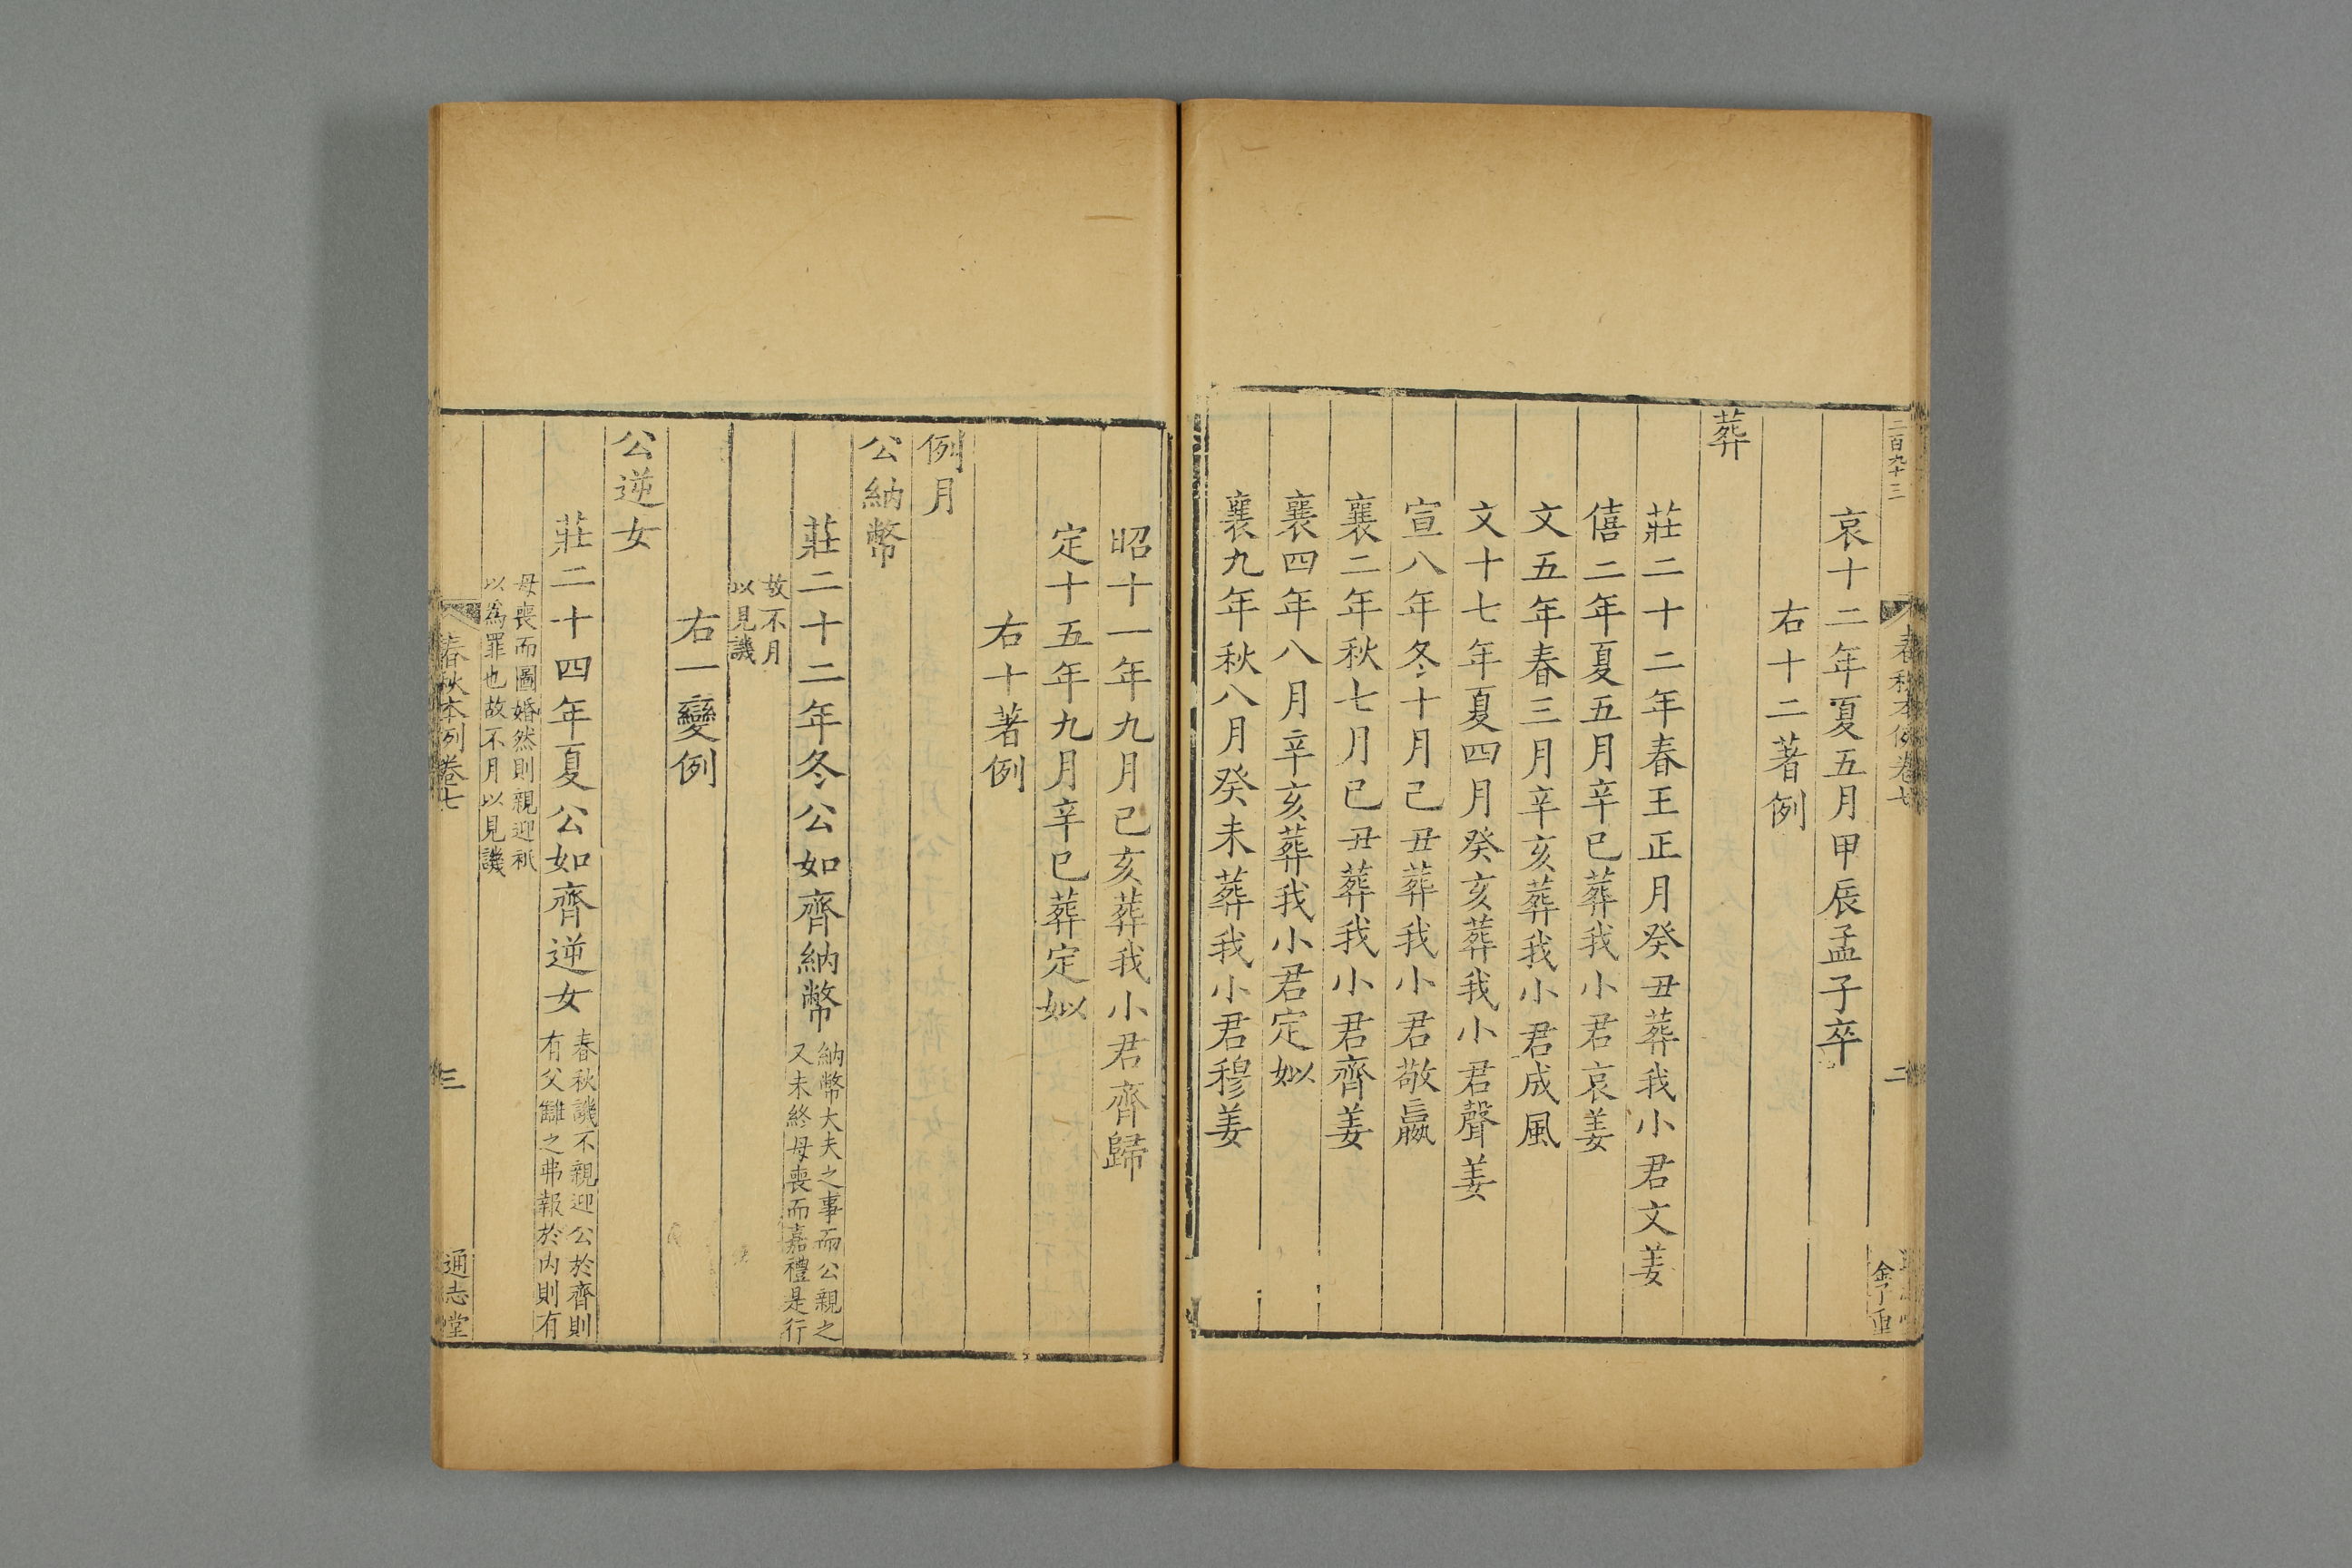 二百九十三
春秋本例卷七
二
金子重
哀十二年夏五月甲辰孟子卒
右十二著例
葬
莊二十二年春王正月癸丑葬我小君文姜
僖二年夏五月辛巳葬我小君哀姜
文五年春三月辛亥葬我小君成風
文十七年夏四月癸亥葬我小君聲姜
宣八年冬十月己丑葬我小君敬嬴
襄二年秋七月己丑葬我小君齊姜
襄四年八月辛亥葬我小君定姒
襄九年秋八月癸未葬我小君穆姜
昭十一年九月己亥葬我小君齊歸
定十五年九月辛巳葬定姒
右十著例
例月
公納幣
莊二十二年冬公如齊納幣
納幣大夫之事而公親之
又未終母喪而嘉禮是行
故不月
以見譏
右一變例
公逆女
莊二十四年夏公如齊逆女
春秋譏不親迎公於齊則
有父讎之弗報於內則有
母喪而圖婚然則親迎秖
以為罪也故不月以見譏
春秋本例卷七
三
通志堂